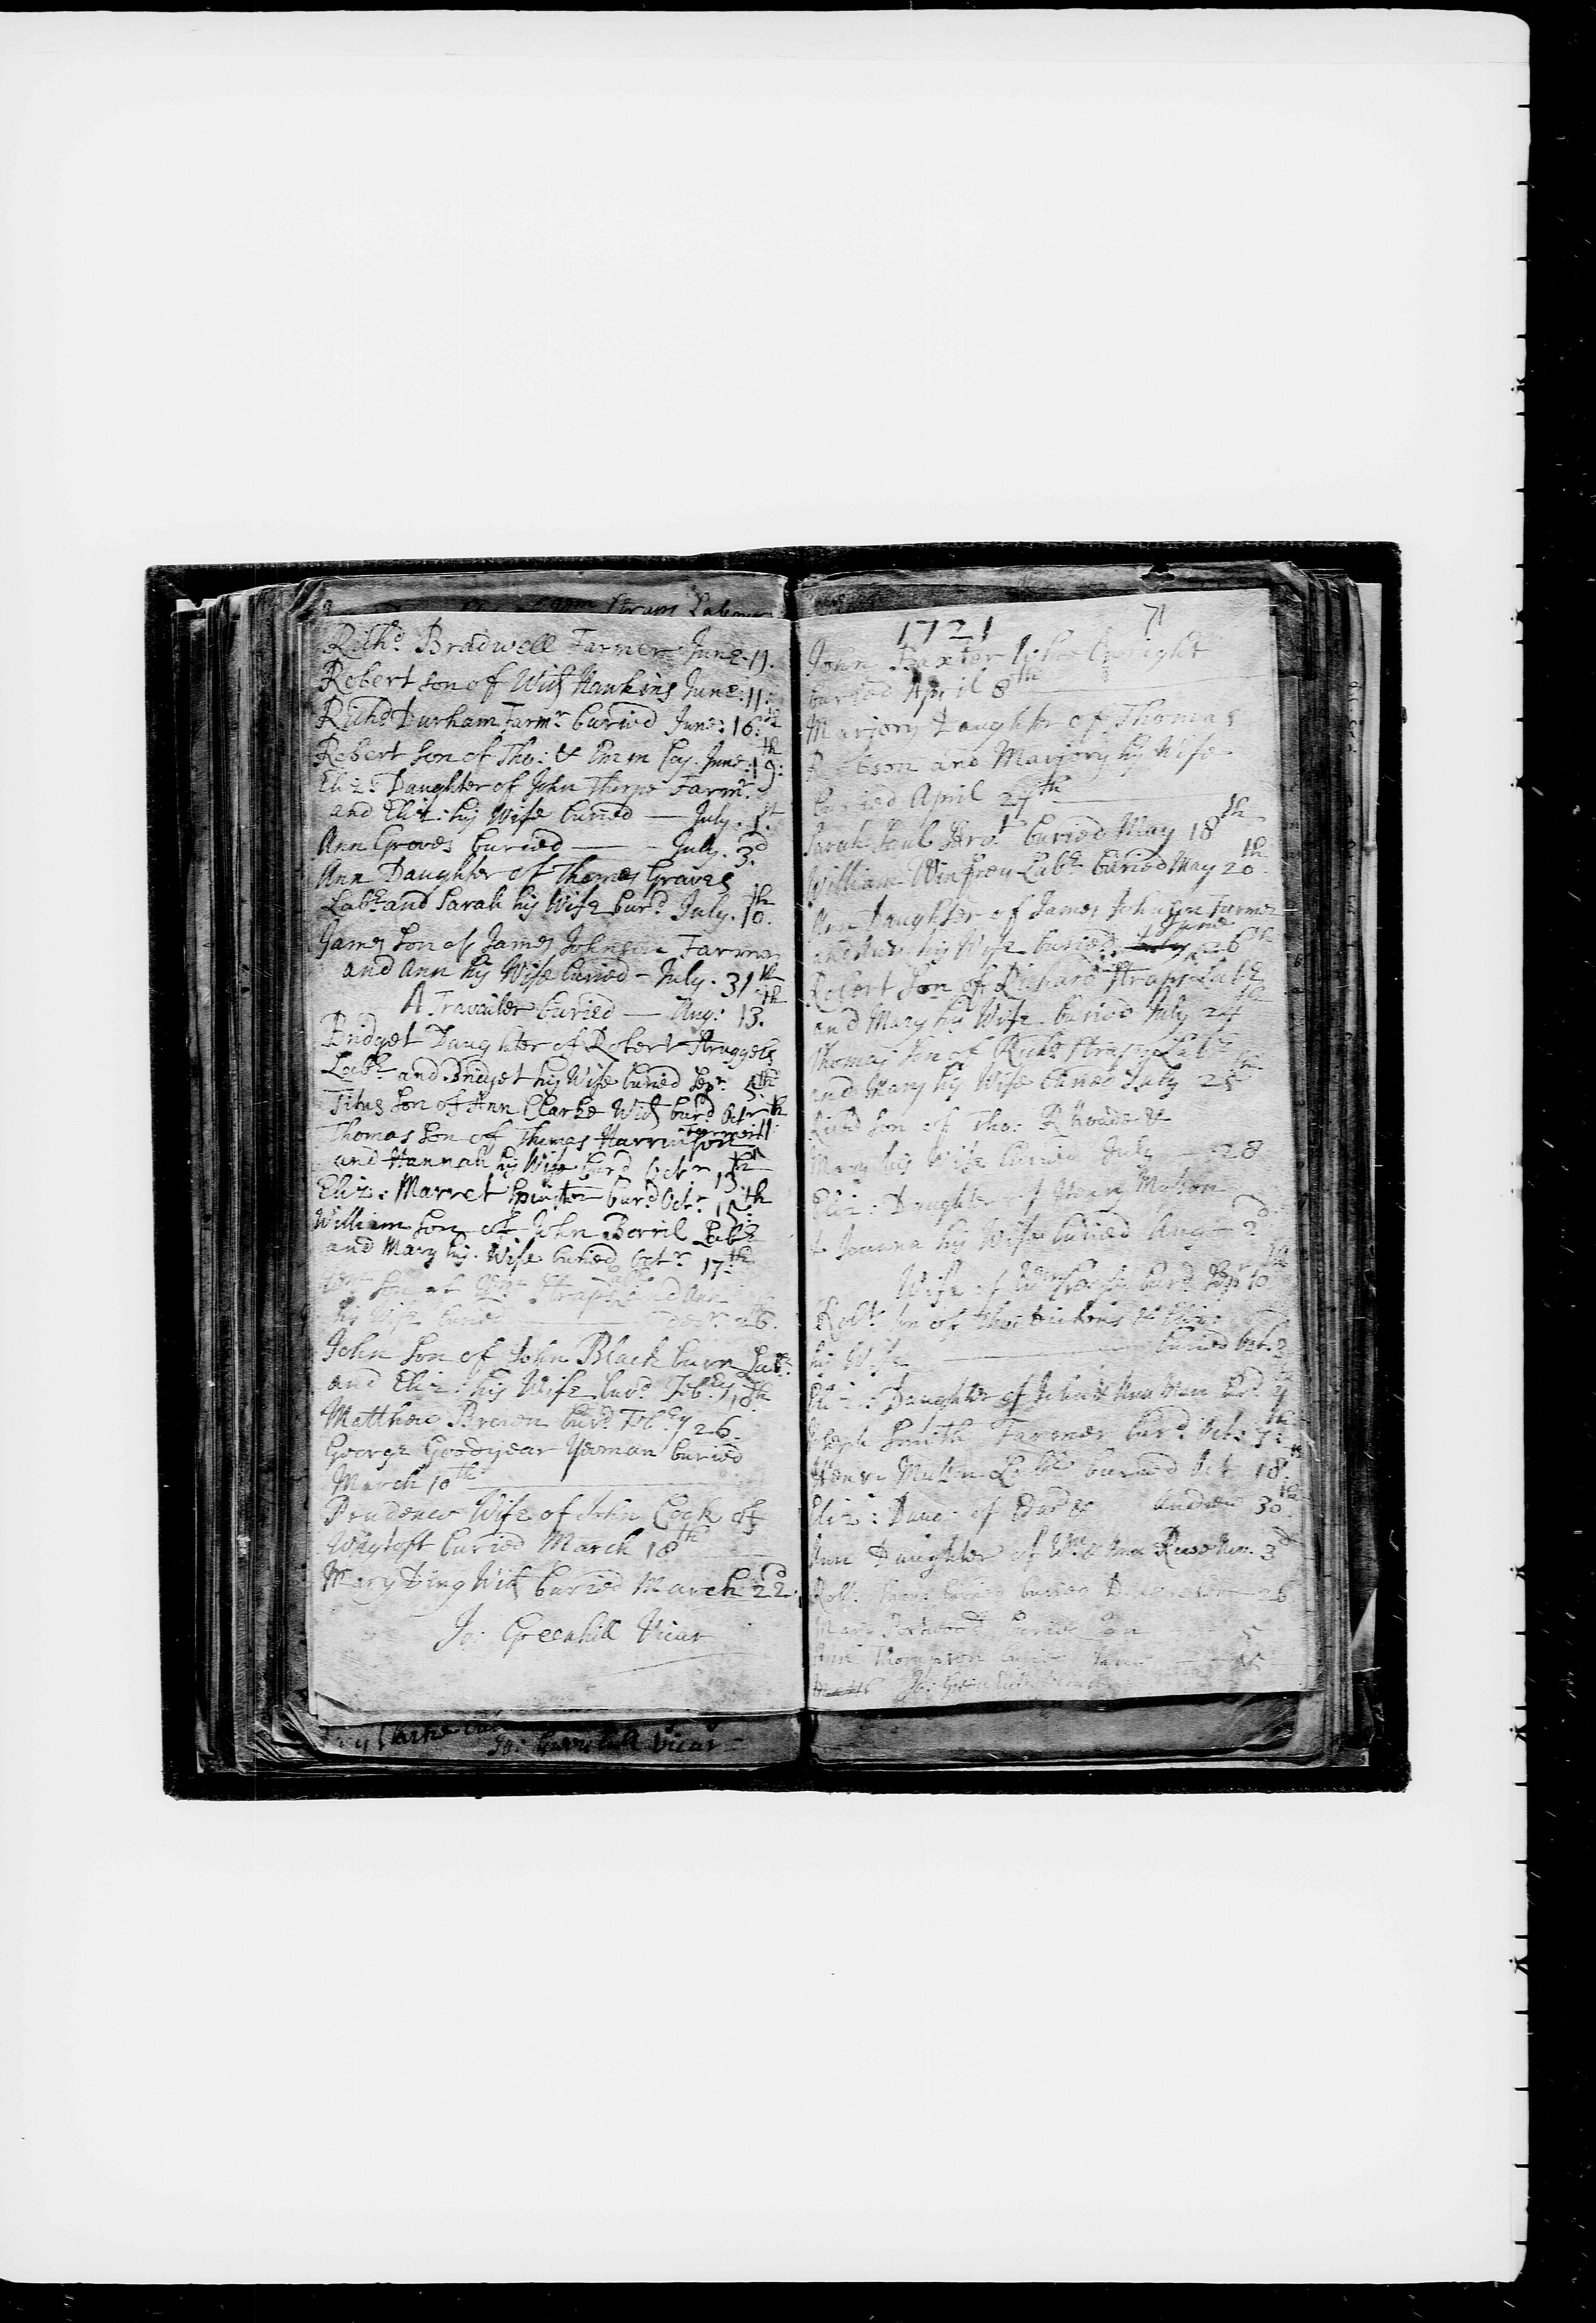 Rich.d Bradwell Farmer June 11.
Robert Son of Wid Hawkins June: 11:
Rich.d Durham Farm.r buried June: 16.th
Robert Son of Tho: & Em m Coy. June: 19:th
Eliz: Daughter of John Thorpe Farm.r
and Eliz: his Wife buried — July. 1.st
Ann Groves buried — July. 3.d
Ann Daughter of Thomas Graves
Lab.r and Sarah his Wife bur.d July. 10.th
James Son of James Johnson Farmer
and Ann his Wife buried - July. 31.th
A Travailer buried — Aug: 13.th
Bridget Daughter of Robert Struggels
Lab.r and Bridget his Wife buried Sep.r 5.th
Titus Son of Ann Clarke Wid bur.d Oct.r 11.th
Thomas Son of Thomas Harrinson Farmer
and Hannah his Wife bur.d Oct.r 13.th
Eliz: Marret Spinster bur.d Oct.r 15.th
William Son of John Berril Lab.r
and Mary his Wife buried Oct.r 17.th
Wm Son of Wm Straps Lab.r and Ann
his Wife buried 26.
John Son of John Black burn Lab.r
and Eliz: his Wife bur.d Feb.ry 18.th
Matthew Brown bur.d Feb.ry 26.
George Goodyear Yeoman buried
March 10th
Prudence Wife of John Cook of
Waytoft buried March 18th
Mary Ding Wid buried March 22.d
Jo: Greenhill Vicar
1721 71
John Baxter
buried April 8th
Marjory Daughter of Thomas
Robson and Marjory his Wife
buried April 27th
Sarah Saul Serv.t buried May 18th
William Winfrey Lab.r buried May 20.th
Ann Daughter of James Johnson Farmer
and Ann his Wife buried June 26th
Robert Son of Richard Straps Lab.r
and Mary his Wife buried July 24th
Thomas Son of Rich.d Straps Lab.r
and Mary his Wife buried July 25th
Rich.d Son of Tho: Rhoads &
Mary his Wife buried July — 28
Eliz: Daughter of Henry Multon
& Joanna his Wife buried Aug 2.d
Wife of bur.d Sep.r 10th
Rob.t Son of Tho: &
his Wife — buried Oct. 3
Eliz: Daughter of John & Ann
Joseph Smith Farmer bur.d Oct: 7:th
Henry Multon Lab.r buried Oct 18.th
Eliz: Daug: of & Andrew 30.th
Ann Daughter of Wm & Ann Russ Nov. 3d
Rob.t buried December 26
Mary buried Jan 5
Ann Thompson buried Jan
Jo: Greenhill Vicar
Jo: Greenhill Vicar